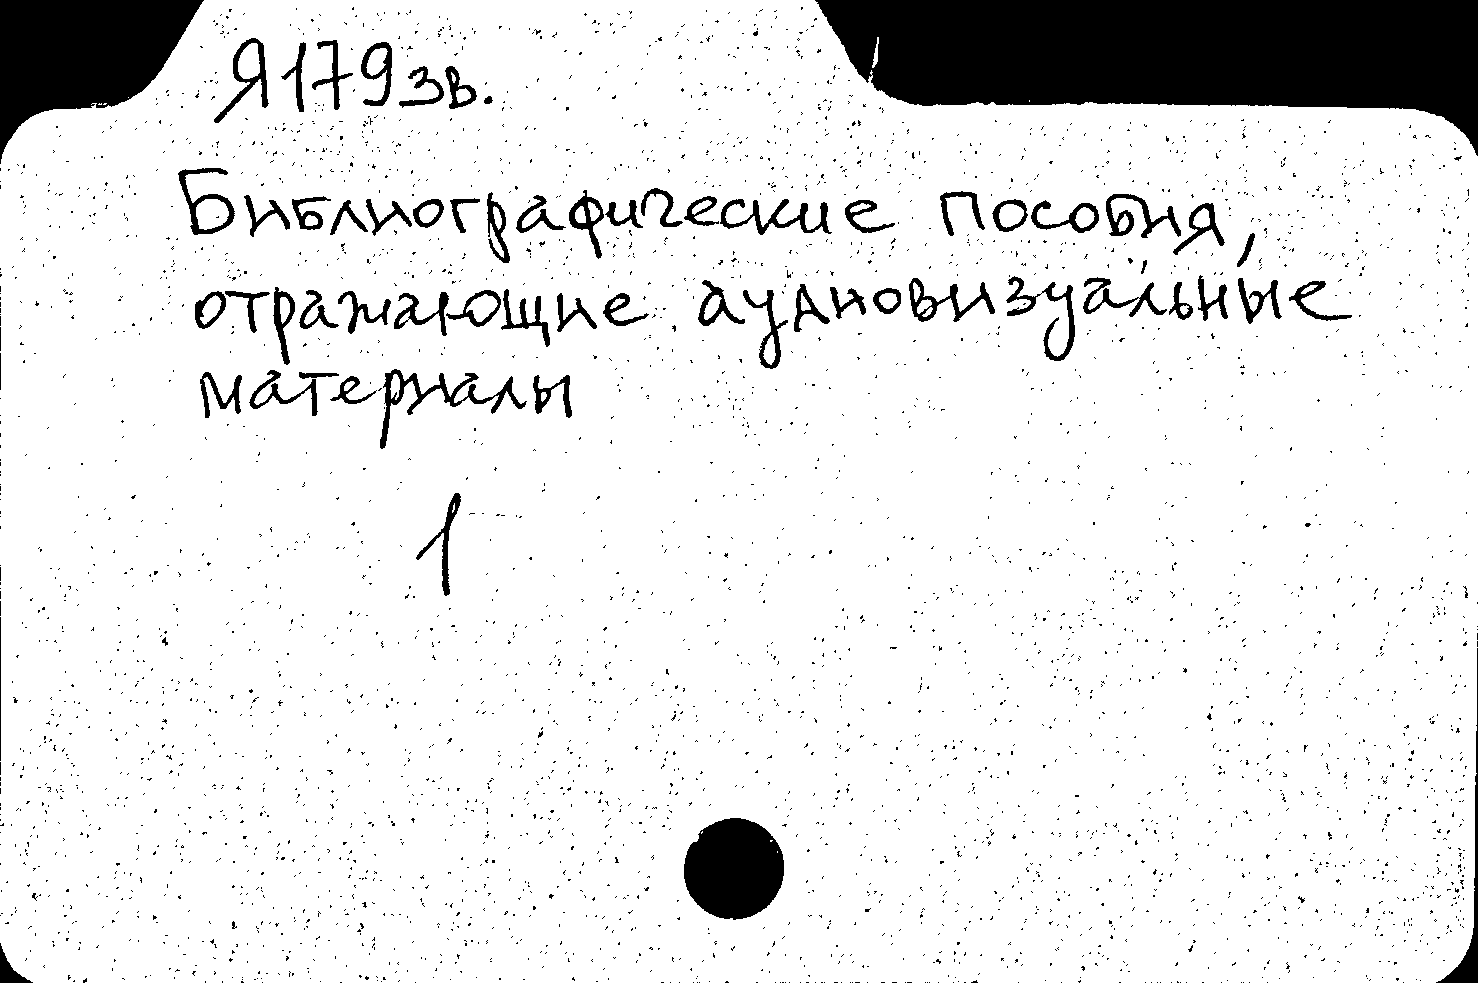 Я179зв.
Библиографические пособия,
отражающие аудиовизуальные
материалы
1